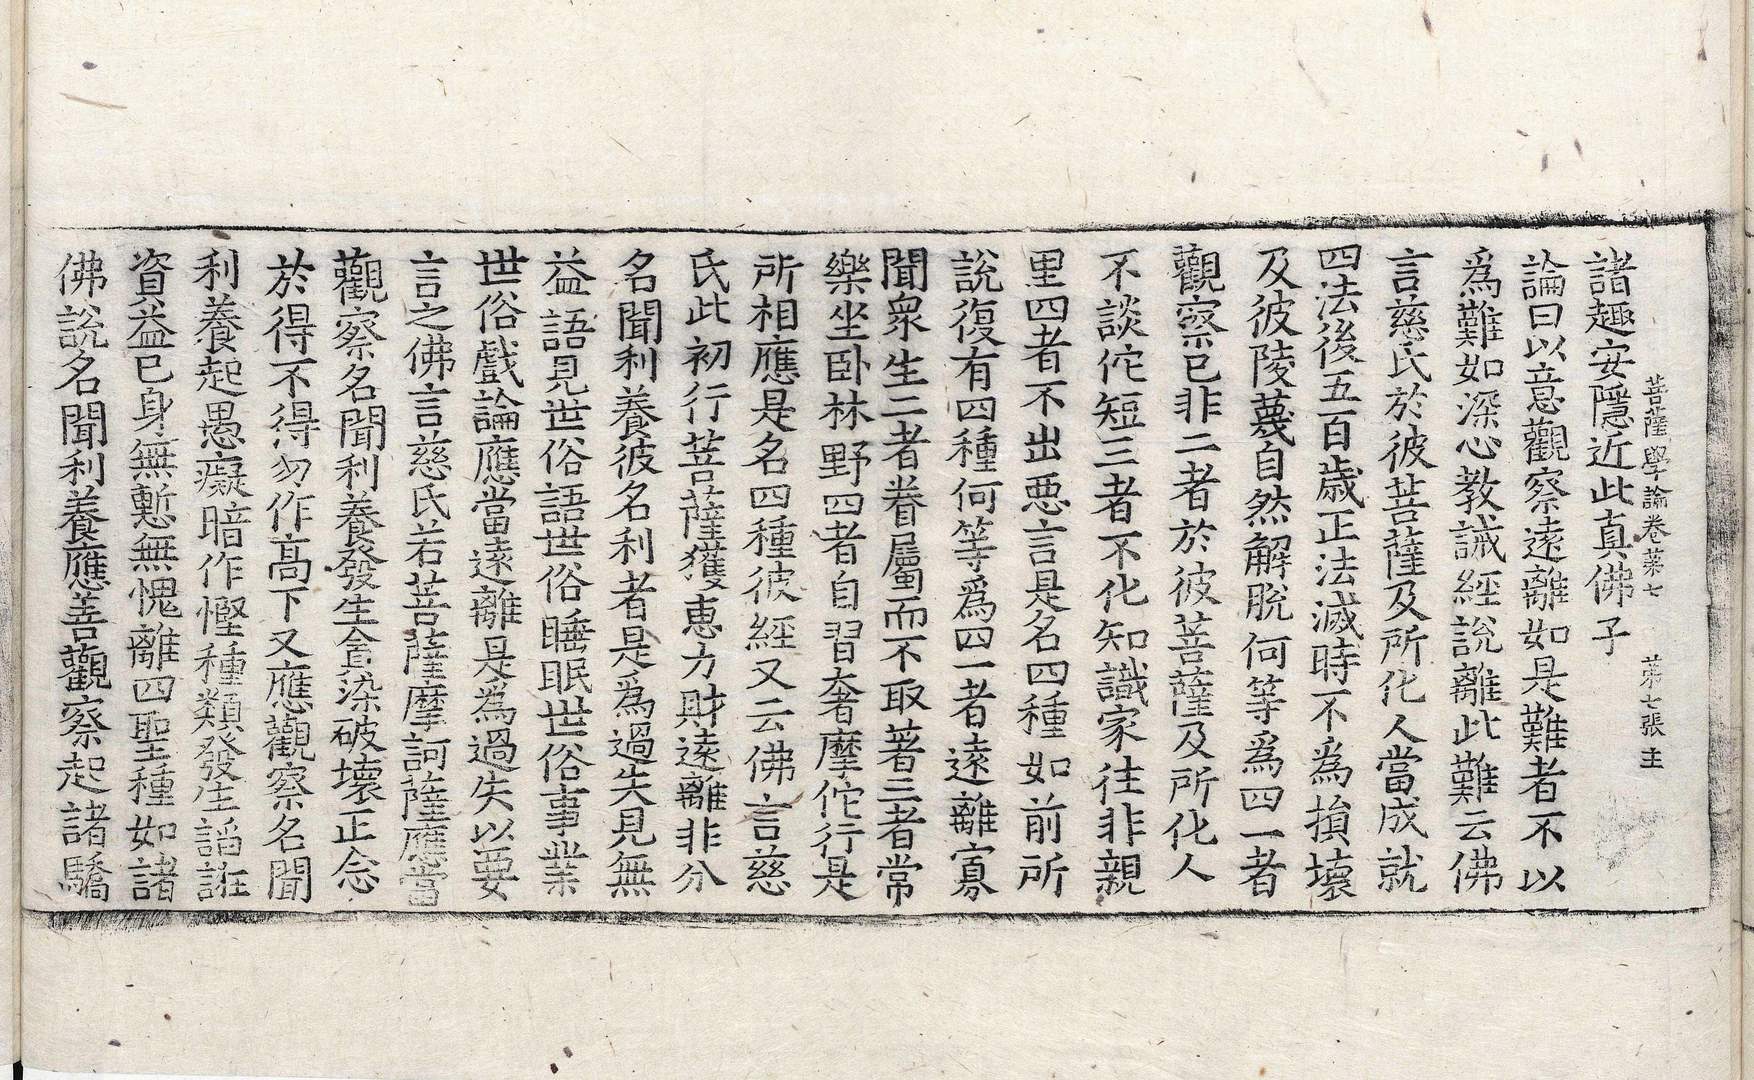 菩薩學論卷第七　第七張　主
諸趣安隱近此真佛子
論曰以意觀察遠離如是難者不以
爲難如深心教誡經說離此難云佛
言慈氏於彼菩薩及所化人當成就
四法後五百歲正法滅時不爲損壞
及彼陵蔑自然解脫何等爲四一者
觀察已非二者於彼菩薩及所化人
不談佗短三者不化知識家往非親
里四者不出惡言是名四種如前所
說復有四種何等爲四一者遠離寡
聞衆生二者眷屬而不取著三者常
樂坐卧林野四者自習奢摩佗行是
所相應是名四種彼經又云佛言慈
氏此初行菩薩獲恵方財遠離非分
名聞利養彼名利者是爲過失見無
益語見世俗語世俗睡眠世俗事業
世俗戲論應當遠離是爲過失以要
言之佛言慈氏若菩薩摩訶薩應當
觀察名聞利養發生貪染破壞正念
於得不得勿作高下又應觀察名聞
利養起愚癡暗作慳種類發生謟誑
資益已身無慙無愧離四聖種如諸
佛說名聞利養應善觀察起諸驕